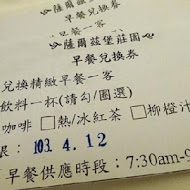 薩爾茲堡莊園
早餐兌換券
早餐一客
薩爾茲堡莊園
早餐兌換券
兌換精緻早餐一客
飲料一杯(請勾/圈選)
咖啡 □熱/冰紅茶 □柳橙汁
限: 103. 4. 12
早餐供應時段:7:30am-9